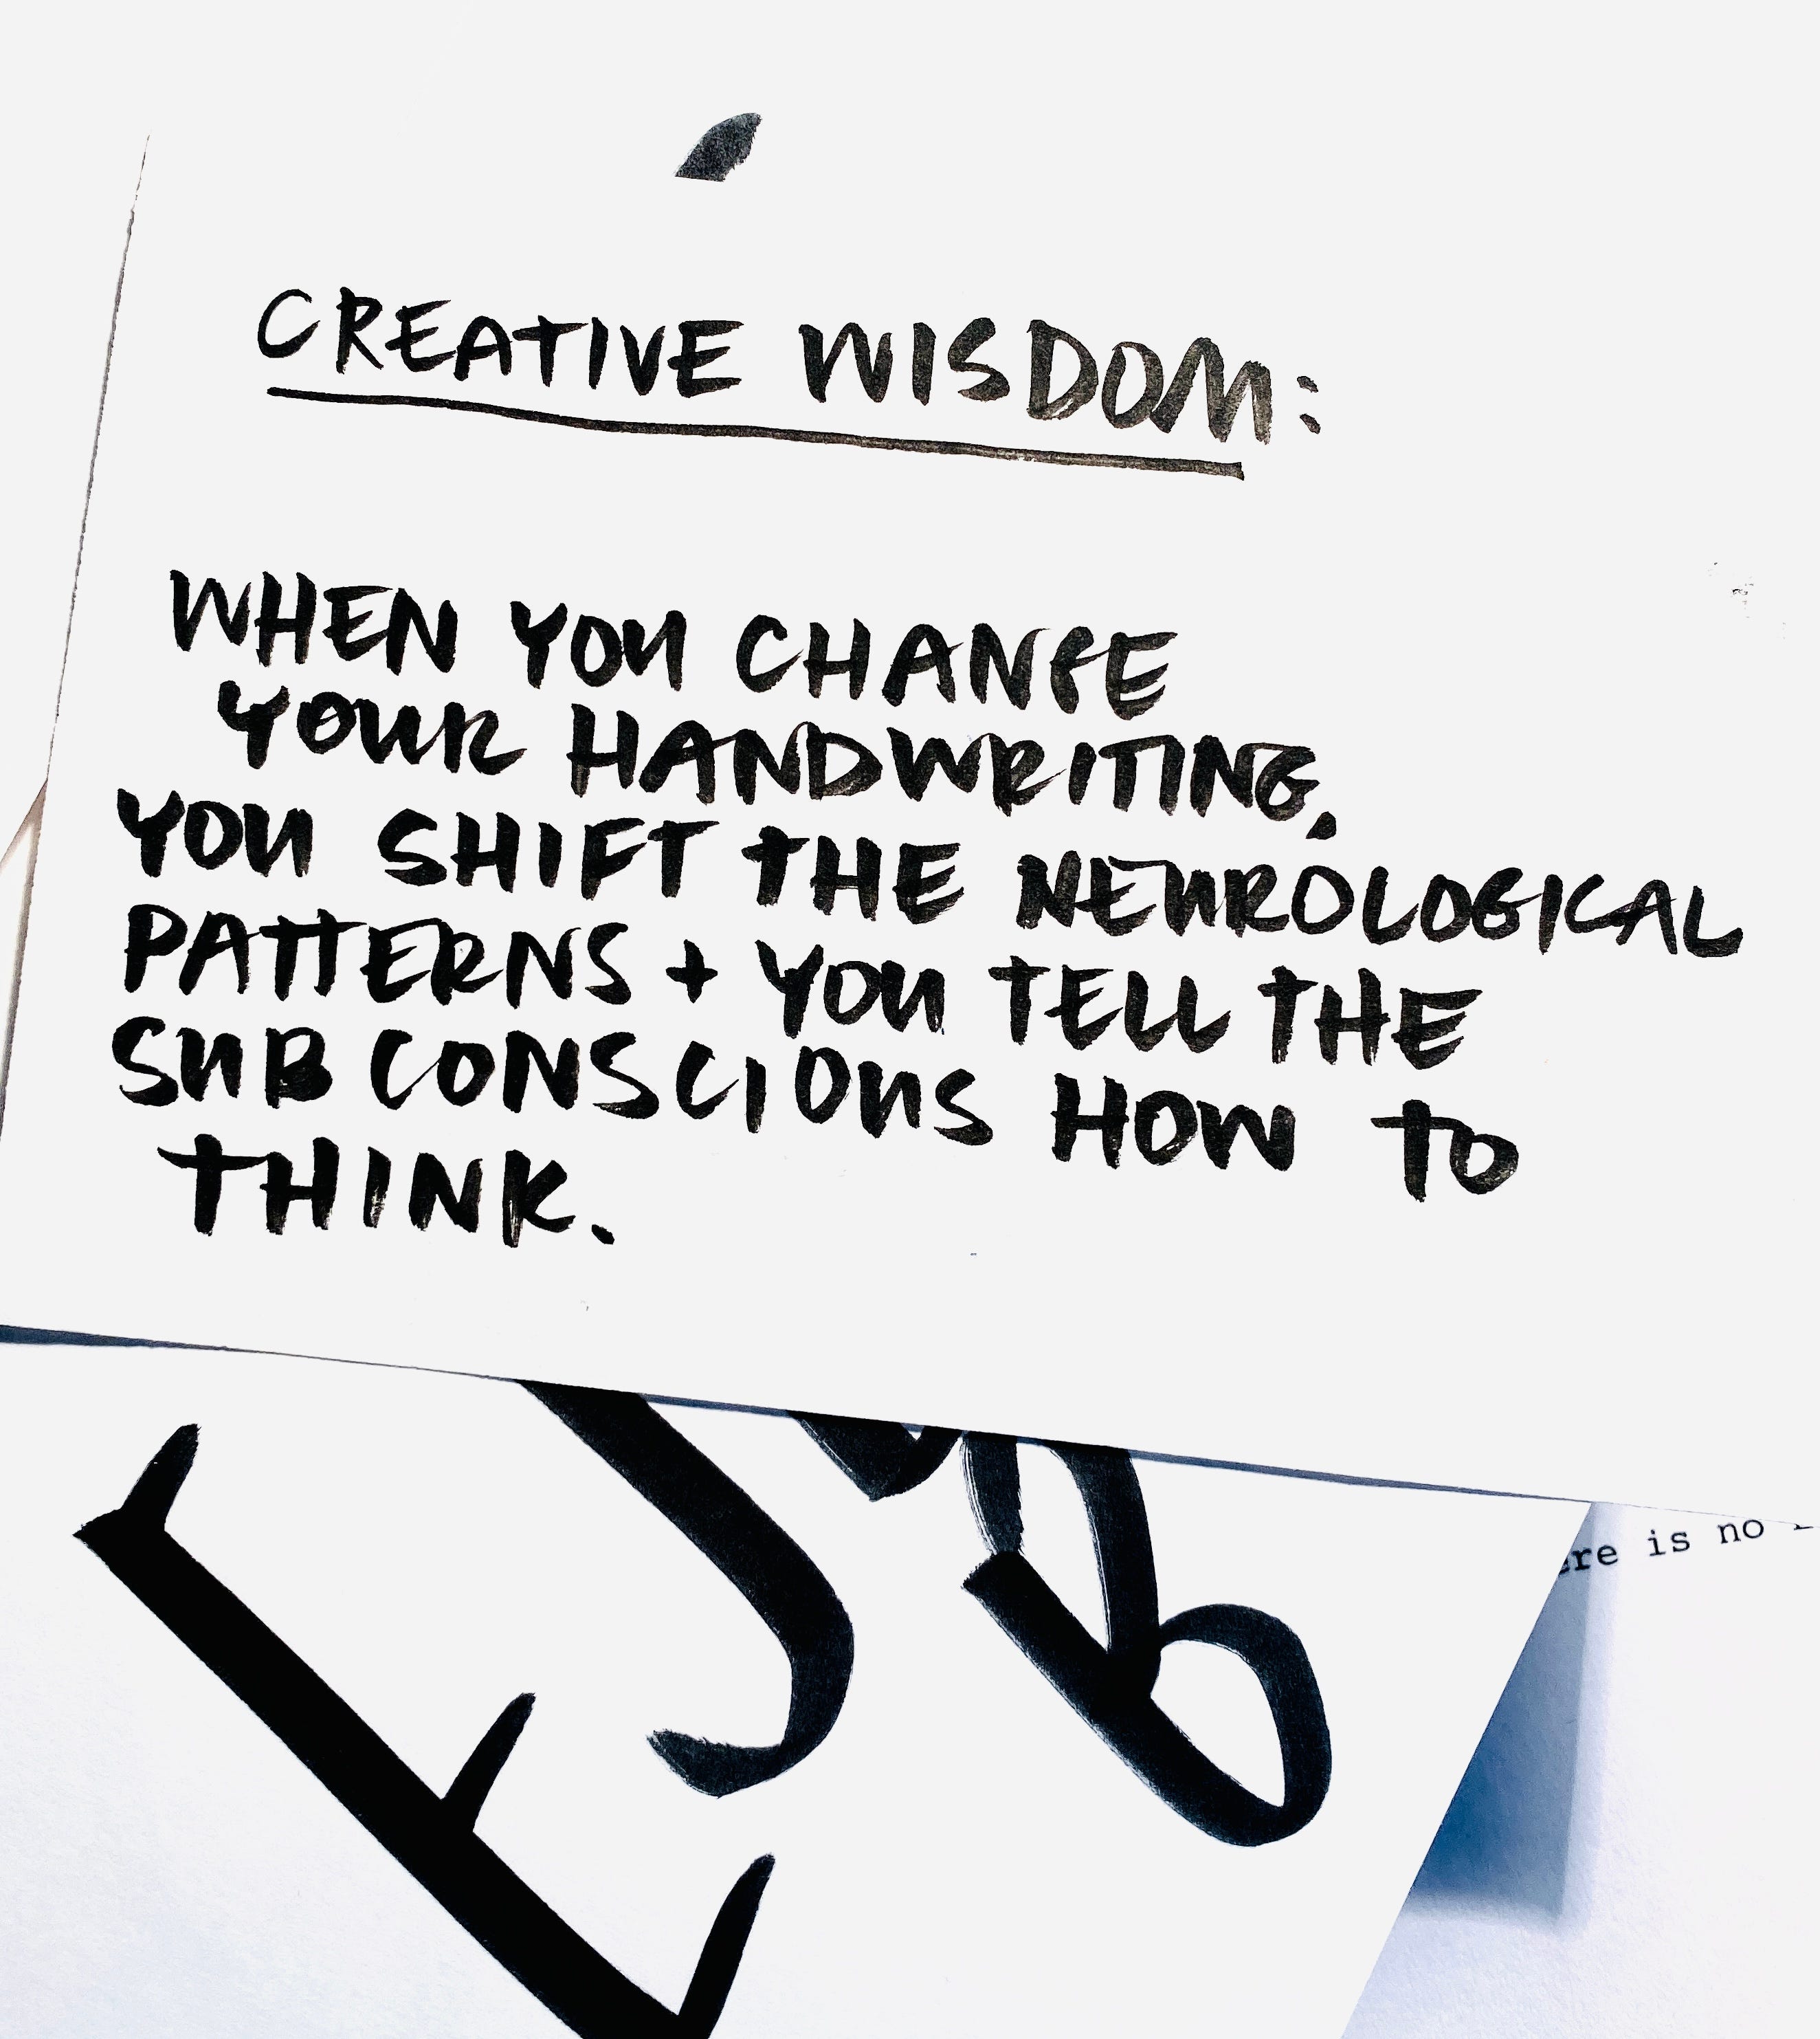 CREATIVE WISDOM:
WHEN YOU CHANGE
YOUR HANDWRITING,
YOU SHIFT THE NEUROLOGICAL
PATTERNS + YOU TELL THE
SUBCONSCIOUS HOW TO
THINK.
is no